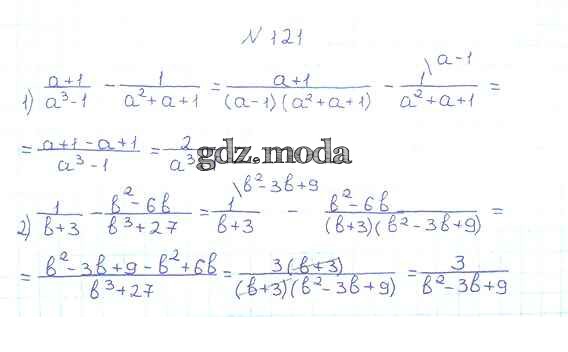 N 121
1) a+1/a³-1 - 1/a²+a+1 = a+1/(a-1)(a²+a+1) - 1\a-1/a²+a+1 =
= a+1-a+1/a³-1 = 2/a³
gdz.moda
2) 1/b+3 - b²-6b/b³+27 = 1\b²-3b+9/b+3 - b²-6b/(b+3)(b²-3b+9) =
= b²-3b+9-b²+6b/b³+27 = 3(b+3)/(b+3)(b²-3b+9) = 3/b²-3b+9